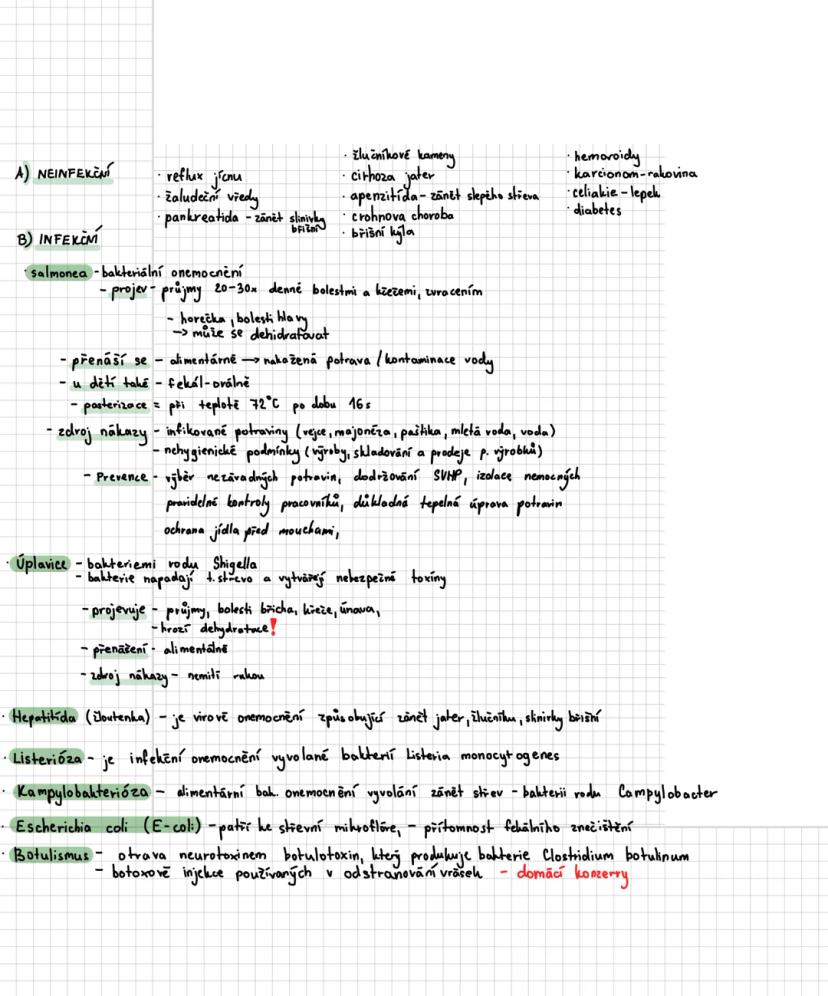 A) NEINFEKČNÍ
· reflux jícnu
· žaludeční vředy
· pankreatida - zánět slinivky břišní
· žlučníkové kameny
· cirhoza jater
· apenzitída - zánět slepého střeva
· crohnova choroba
· břišní kýla
· hemoroidy
· karcionom - rakovina
· celiakie - lepek
· diabetes
B) INFEKČNÍ
· salmonea - bakteriální onemocnění
- projev - průjmy 20-30x denně bolestmi a křečemi, zvracením
- horečka, bolesti hlavy
-> může se dehidratovat
- přenáší se - alimentárně -> nakažená potrava / kontaminace vody
- u dětí také - fekál-orálně
- pasterizace = při teplotě 72°C po dobu 16s
- zdroj nákazy - infikované potraviny (vejce, majonéza, paštika, mletá voda, voda)
- nehygienické podmínky (výroby, skladování a prodeje p. výrobků)
- Prevence - výběr nezávadných potravin, dodržování SVHP, izolace nemocných
pravidelné kontroly pracovníků, důkladná tepelná úprava potravin
ochrana jídla před mouchami,
· Úplavice - bakteriemi rodu Shigella
- bakterie napadají t. střevo a vytvářejí nebezpečné toxiny
- projevuje - průjmy, bolesti břicha, křeče, únava,
- hrozí dehydratace!
- přenášení - alimentálně
- zdroj nákazy - nemití rukou
· Hepatitída (žloutenka) - je virové onemocnění způsobující zánět jater, žlučníku, slinivky břišní
· Listerióza - je infekční onemocnění vyvolané bakterií Listeria monocytogenes
· Kampylobakterióza - alimentární bak. onemocnění vyvolání zánět střev - bakterií rodu Campylobacter
· Escherichia coli (E-coli) - patří ke střevní mikroflóře, - přítomnost fekálního znečištění
· Botulismus - otrava neurotoxinem botulotoxin, který produkuje bakterie Clostridium botulinum
- botoxové injekce používaných v odstranování vrásek - domácí konzervy